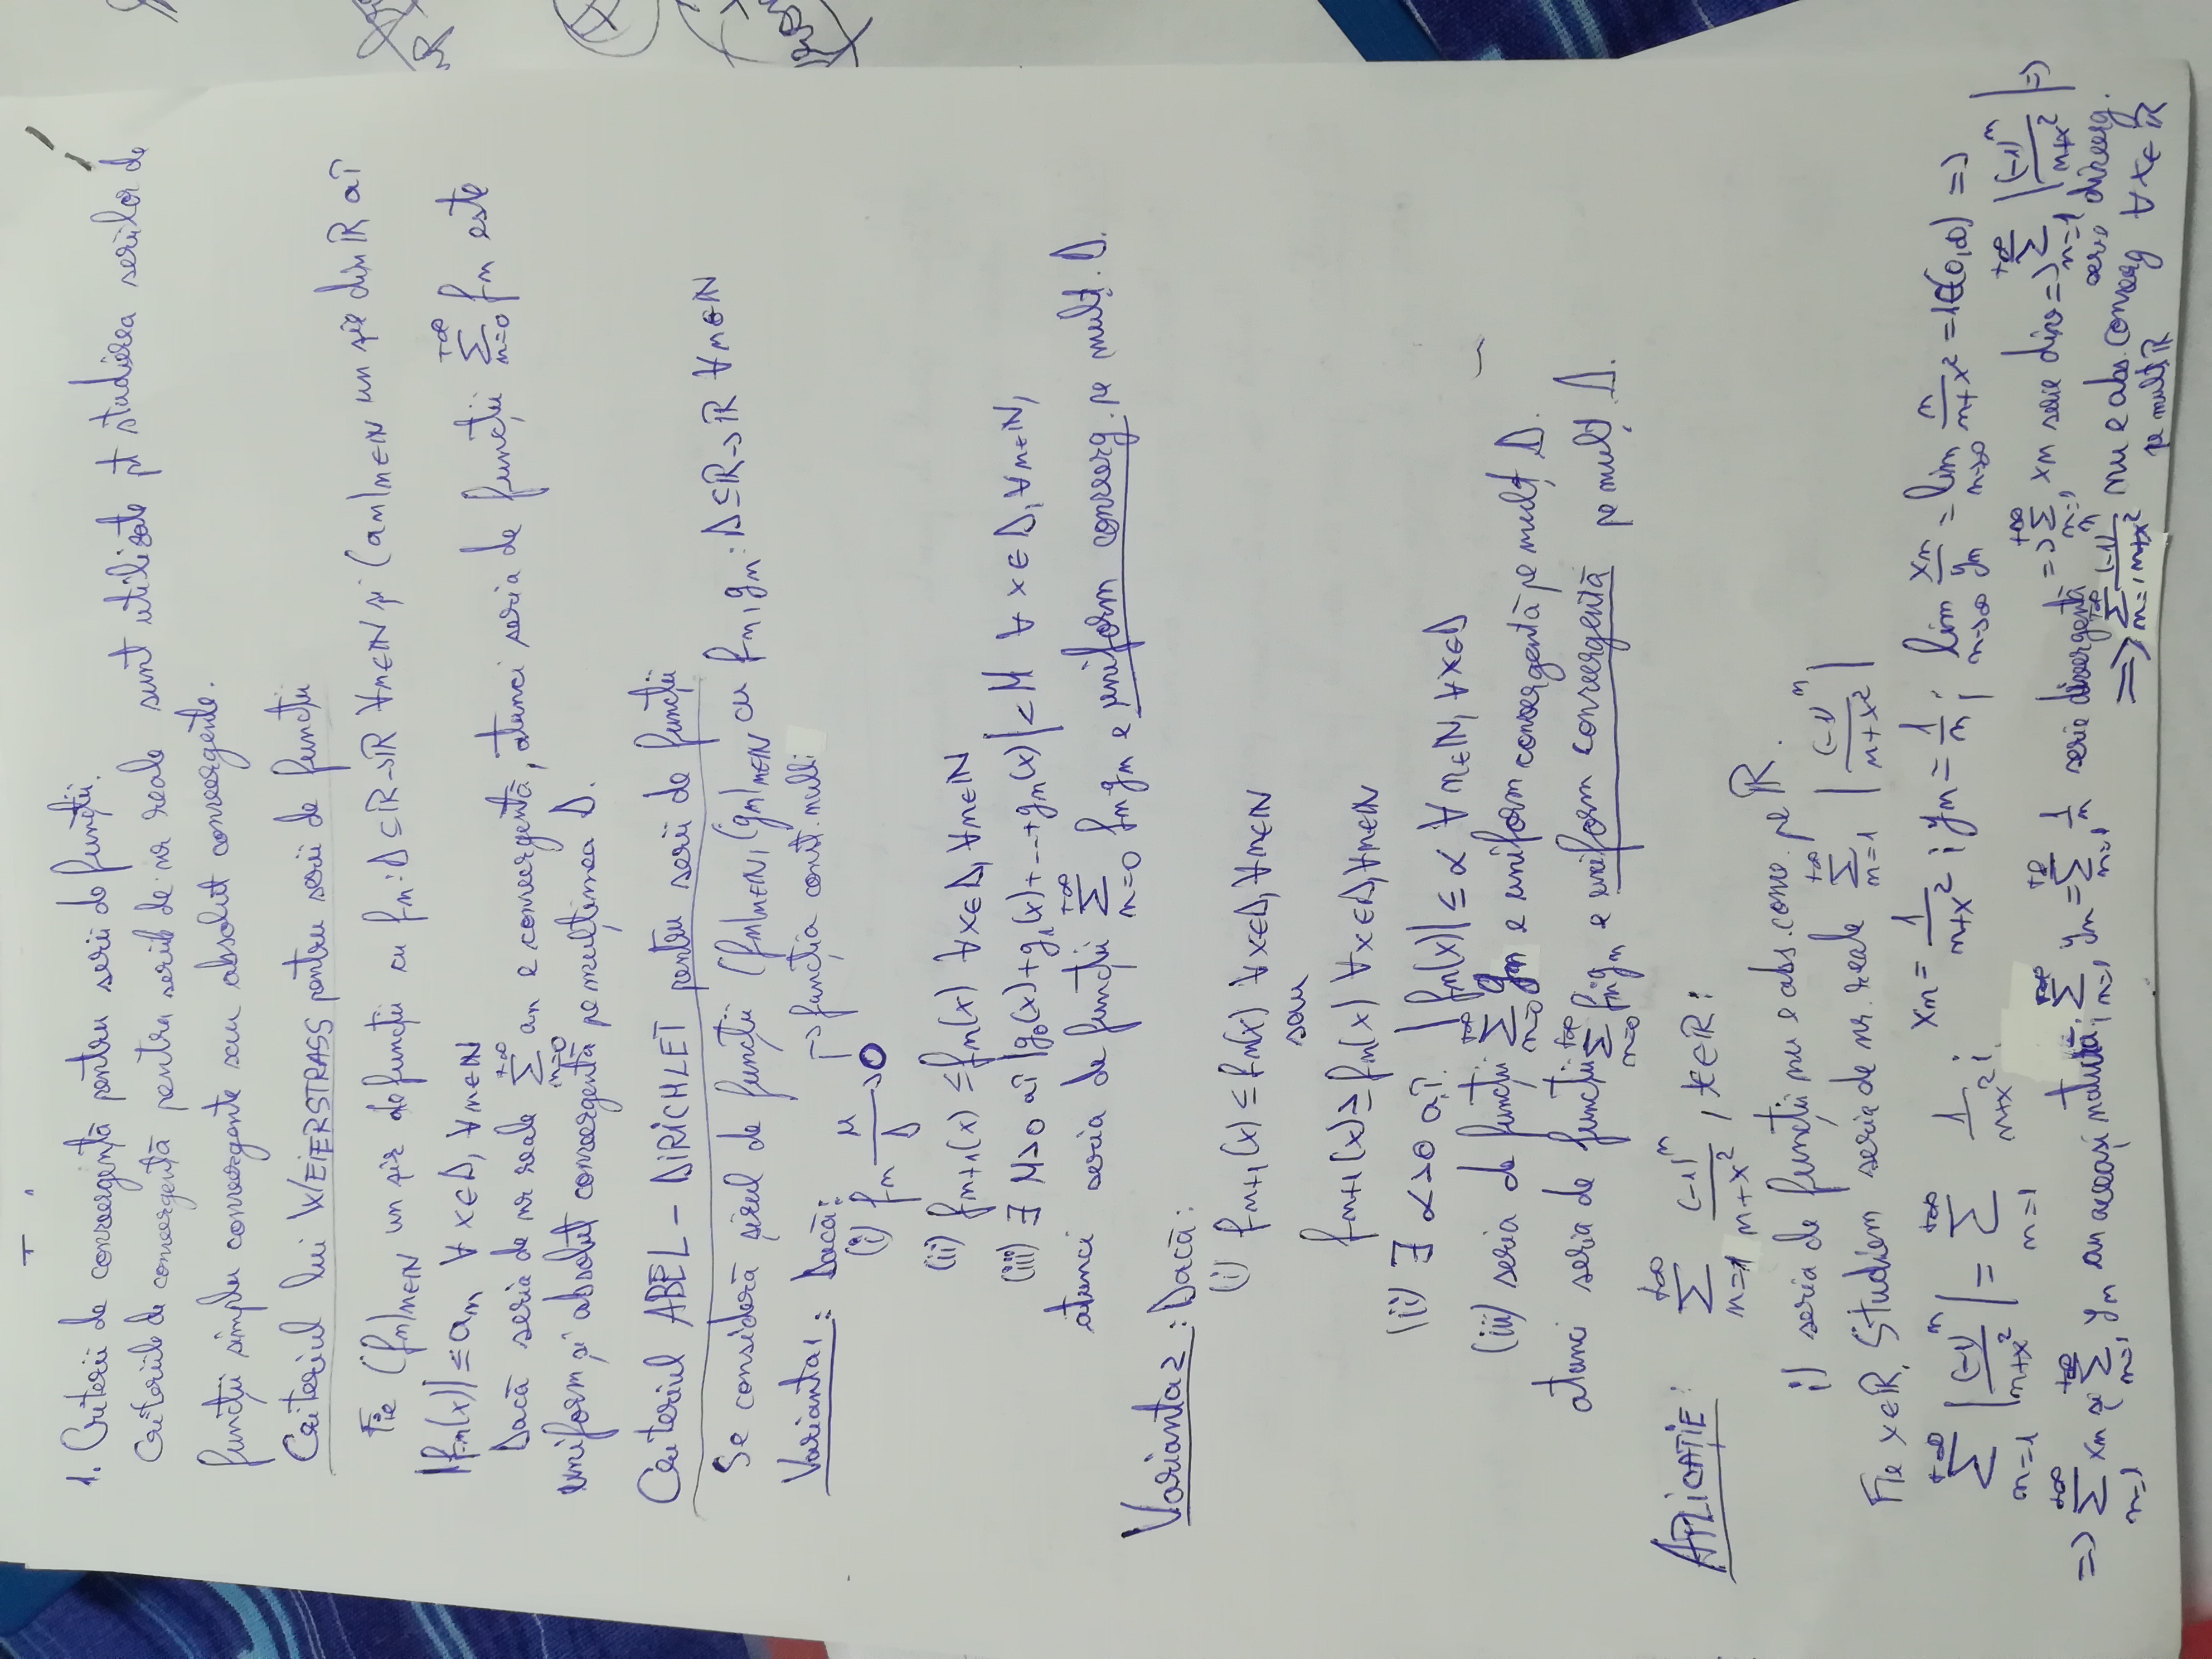 1. Criterii de convergență pentru serii de funcții.
Criteriile de convergență pentru seriile de nr reale sunt utilizate pt studierea seriilor de
funcții simplu convergente sau absolut convergente.
Criteriul lui WEIERSTRASS pentru serii de funcții
Fie (fn)n∈ℕ un șir de funcții cu fn: D⊆ℝ→ℝ ∀n∈ℕ și (an)n∈ℕ un șir din ℝ aî
|fn(x)| ≤ an ∀ x∈D, ∀n∈ℕ
Dacă seria de nr reale +∞Σn=0 an e convergentă, atunci seria de funcții +∞Σn=0 fn este
uniform și absolut convergentă pe mulțimea D.
Criteriul ABEL - DIRICHLET pentru serii de funcții
Se consideră șirul de funcții (fn)n∈ℕ, (gn)n∈ℕ cu fn, gn: D⊆ℝ→ℝ ∀n∈ℕ
Varianta1: Dacă: → funcția const. nulli
(i) fn u/D → 0
(ii) fn+1(x) ≤ fn(x) ∀x∈D, ∀n∈ℕ
(iii) ∃ M>0 aî |g0(x)+g1(x)+...+gn(x)| < M ∀ x∈D, ∀n∈ℕ,
atunci seria de funcții +∞Σn=0 fn gn e uniform converg. pe mulț. D.
Varianta2: Dacă:
(i) fn+1(x) ≤ fn(x) ∀x∈D, ∀n∈ℕ
sau
fn+1(x) ≥ fn(x) ∀x∈D, ∀n∈ℕ
(ii) ∃ α>0 aî. |fn(x)| ≤ α ∀ n∈ℕ, ∀x∈D
(iii) seria de funcții +∞Σn=0 gn e uniform convergentă pe mulț D.
atunci seria de funcții +∞Σn=0 fn gn e uniform convergentă pe mulț D.
APLICAȚIE: +∞Σn=1 (-1)^n/(n+x²), x∈ℝ:
i) seria de funcții nu e abs. conv. pe ℝ.
Fie x∈ℝ. Studiem seria de nr. reale +∞Σn=1 |(-1)^n/(n+x²)|
+∞Σn=1 |(-1)^n/(n+x²)| = +∞Σn=1 1/(n+x²); xn = 1/(n+x²); yn = 1/n; lim n→∞ xn/yn = lim n→∞ n/(n+x²) = 1∈(0,∞) =>
=> +∞Σn=1 xn și +∞Σn=1 yn au aceași natură; +∞Σn=1 yn = +∞Σn=1 1/n serie divergentă => +∞Σn=1 xn serie div => +∞Σn=1 |(-1)^n/(n+x²)| =>
serie diverg.
=> +∞Σn=1 (-1)^n/(n+x²) nu e abs. converg ∀ x∈ℝ
pe mulț ℝ